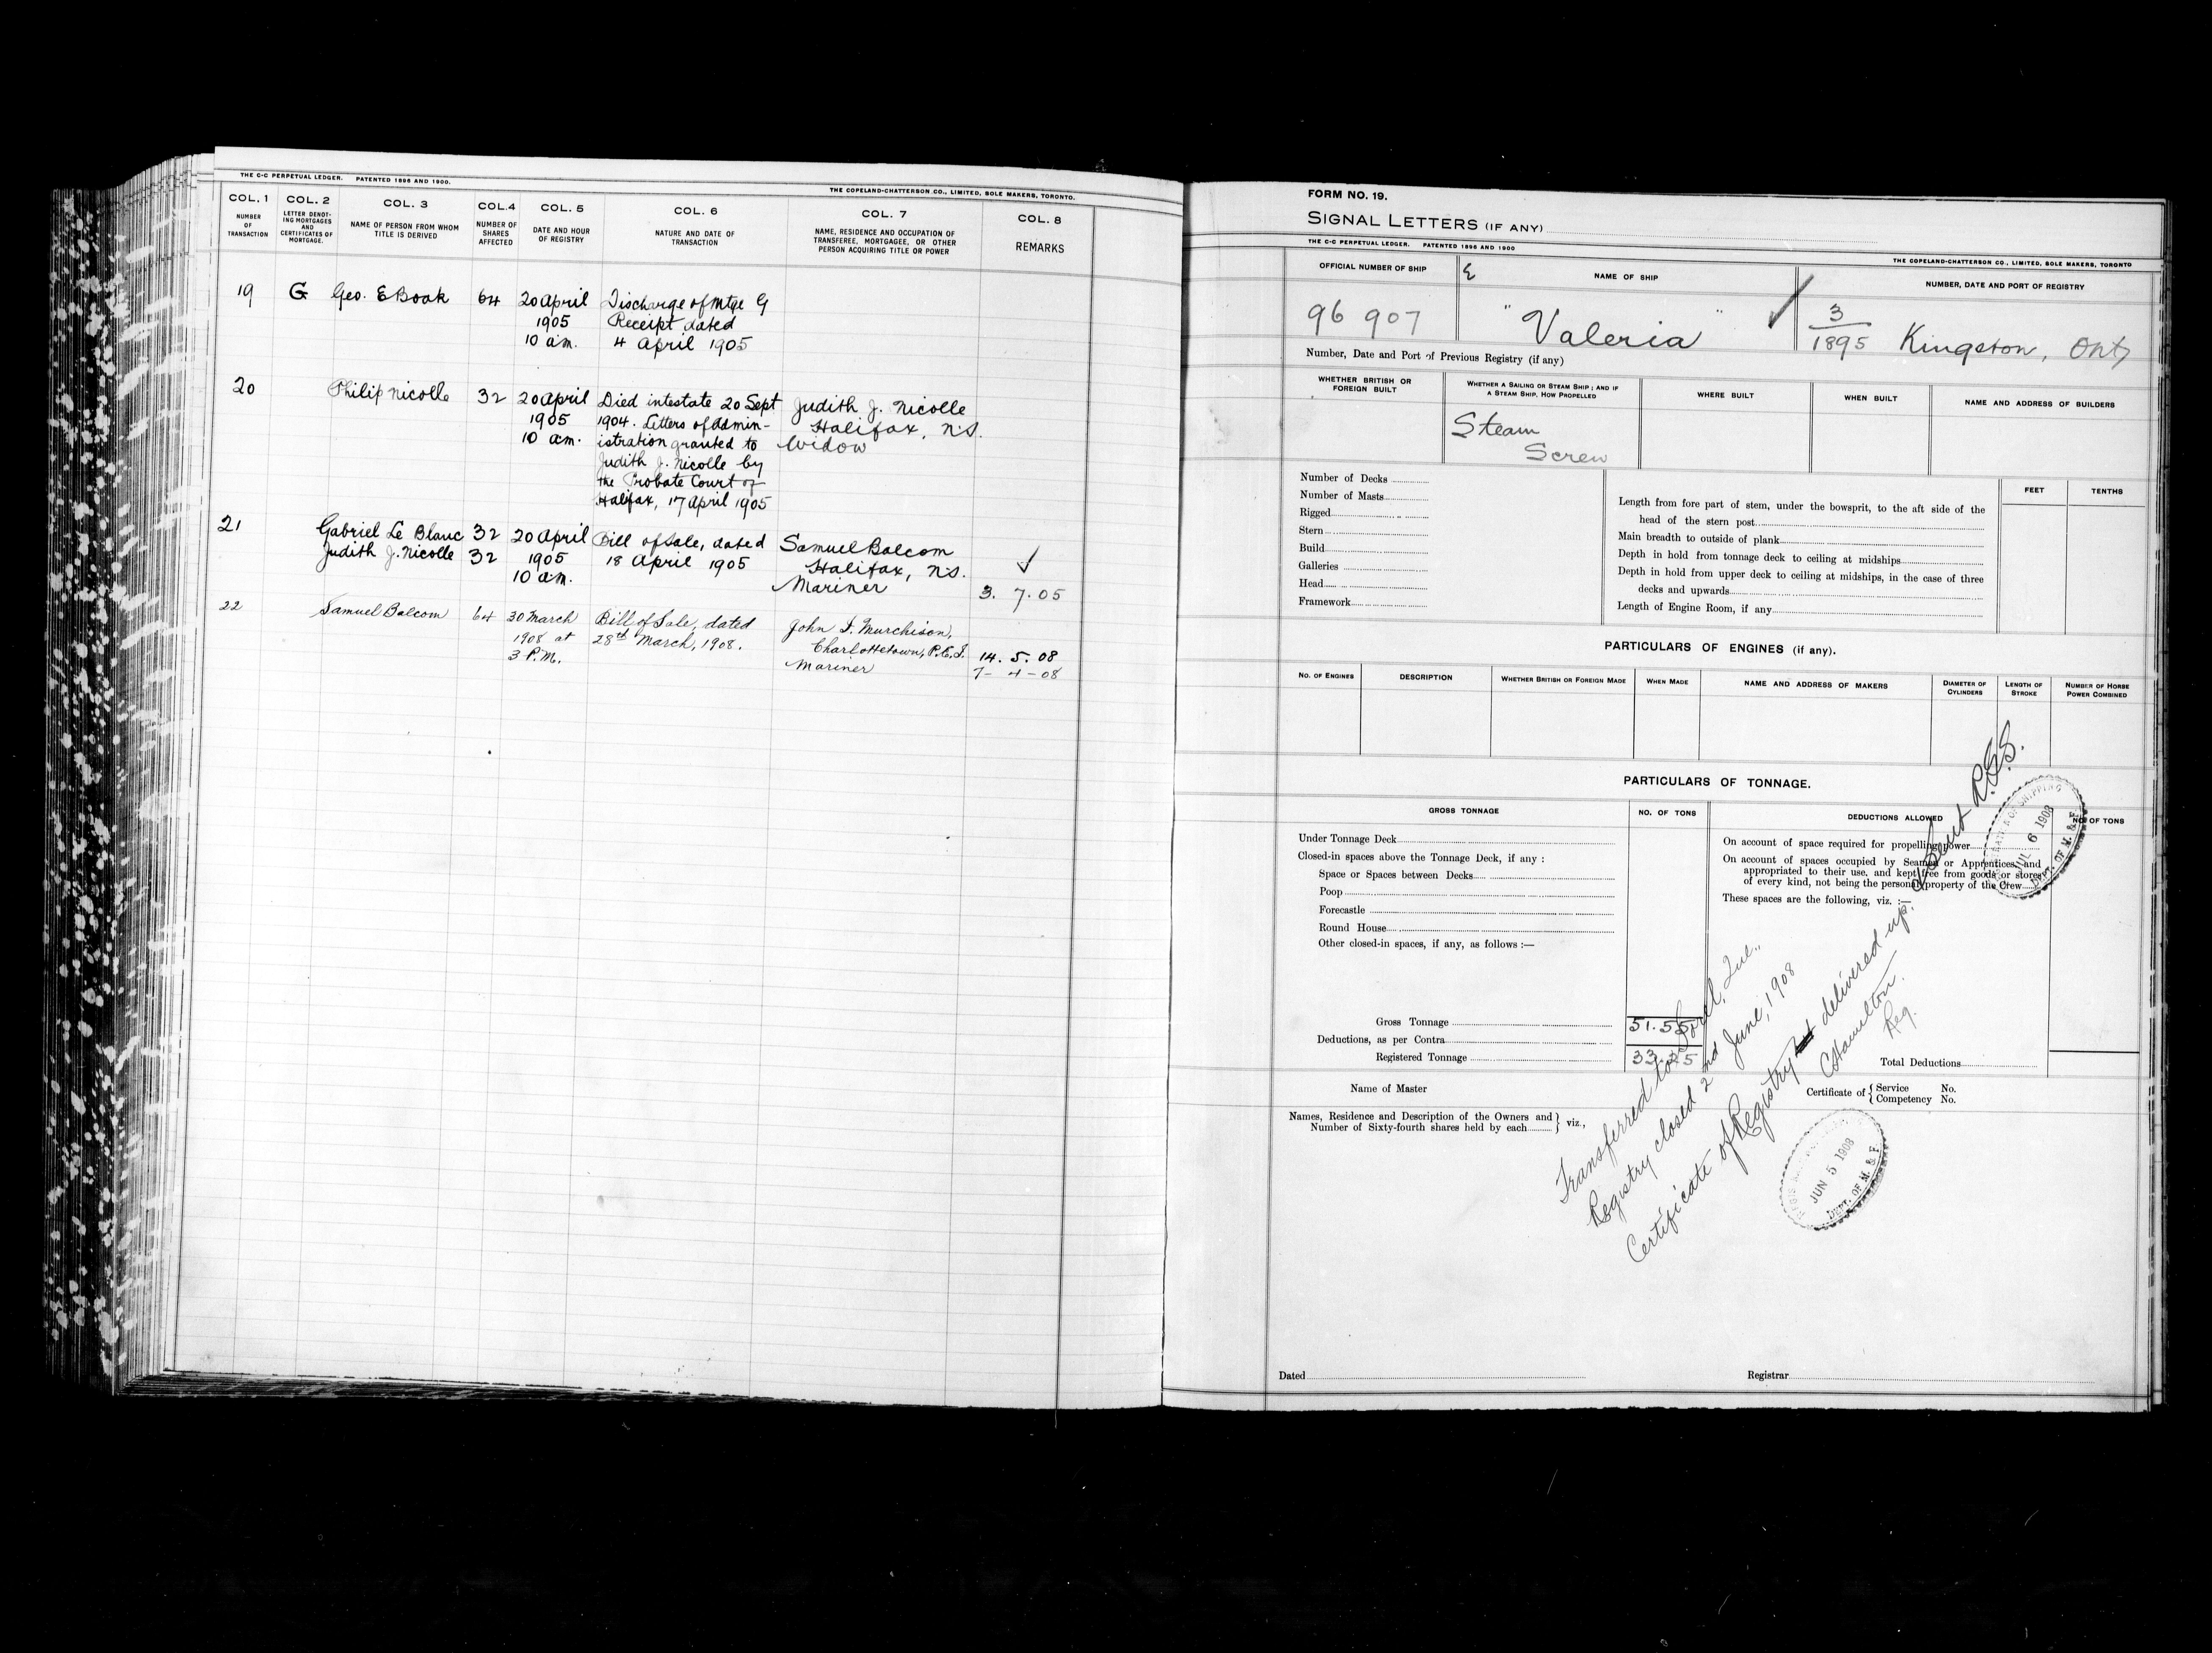 THE C-C PERPETUAL LEDGER. PATENTED 1896 AND 1900.
THE COPELAND-CHATTERSON CO., LIMITED, SOLE MAKERS, TORONTO.
COL. 1 COL. 2 COL. 3 COL. 4 COL. 5 COL. 6 COL. 7 COL. 8
NUMBER OF TRANSACTION
LETTER DENOT-
ING MORTGAGES
AND
CERTIFICATES OF
MORTGAGE.
NAME OF PERSON FROM WHOM
TITLE IS DERIVED
NUMBER OF
SHARES
AFFECTED
DATE AND HOUR
OF REGISTRY
NATURE AND DATE OF
TRANSACTION
NAME, RESIDENCE AND OCCUPATION OF
TRANSFEREE, MORTGAGEE, OR OTHER
PERSON ACQUIRING TITLE OR POWER
REMARKS
19 G Geo. E Boak 64 20 April Discharge of Mtge G
1905 Receipt dated
10 a.m. 4 April 1905
20 Philip Nicolle 32 20 April Died intestate 20 Sept Judith J. Nicolle
1905 1904. Letters of Admin- Halifax, N.S.
10 a.m. istration granted to Widow
Judith J. Nicolle by
the Probate Court of
Halifax, 17 April 1905
21 Gabriel Le Blanc 32 20 April Bill of Sale, dated Samuel Balcom
Judith J. Nicolle 32 1905 18 April 1905 Halifax, N.S. ✓
10 a.m. Mariner 3. 7. 05
22 Samuel Balcom 64 30 March Bill of Sale, dated John I. Murchison,
1908 at 28th March, 1908. Charlottetown, P.E.I. 14. 5. 08
3 P.M. Mariner 7- 4 - 08
FORM NO. 19.
SIGNAL LETTERS (IF ANY)
THE C-C PERPETUAL LEDGER. PATENTED 1896 AND 1900
THE COPELAND-CHATTERSON CO., LIMITED, SOLE MAKERS, TORONTO
OFFICIAL NUMBER OF SHIP
NAME OF SHIP
NUMBER, DATE AND PORT OF REGISTRY
96 907 "Valeria" ✓ 3/1895 Kingston, Ont
Number, Date and Port of Previous Registry (if any)
WHETHER BRITISH OR
FOREIGN BUILT
WHETHER A SAILING OR STEAM SHIP; AND IF
A STEAM SHIP, HOW PROPELLED
WHERE BUILT
WHEN BUILT
NAME AND ADDRESS OF BUILDERS
Steam
Screw
Number of Decks
Number of Masts
Rigged
Stern
Build
Galleries
Head
Framework
FEET TENTHS
Length from fore part of stem, under the bowsprit, to the aft side of the
head of the stern post
Main breadth to outside of plank
Depth in hold from tonnage deck to ceiling at midships
Depth in hold from upper deck to ceiling at midships, in the case of three
decks and upwards
Length of Engine Room, if any
PARTICULARS OF ENGINES (if any).
NO. OF ENGINES
DESCRIPTION
WHETHER BRITISH OR FOREIGN MADE
WHEN MADE
NAME AND ADDRESS OF MAKERS
DIAMETER OF
CYLINDERS
LENGTH OF
STROKE
NUMBER OF HORSE
POWER COMBINED
PARTICULARS OF TONNAGE.
GROSS TONNAGE
NO. OF TONS
DEDUCTIONS ALLOWED
NO. OF TONS
Under Tonnage Deck
Closed-in spaces above the Tonnage Deck, if any :
Space or Spaces between Decks
Poop
Forecastle
Round House
Other closed-in spaces, if any, as follows :—
On account of space required for propelling power
On account of spaces occupied by Seamen or Apprentices, and
appropriated to their use, and kept free from goods or stores
of every kind, not being the personal property of the Crew
These spaces are the following, viz. :—
Gross Tonnage 51.55
Deductions, as per Contra
Registered Tonnage 33.25
Total Deductions
Name of Master
Certificate of { Service No.
Competency No.
Names, Residence and Description of the Owners and
Number of Sixty-fourth shares held by each } viz.,
Transferred to Sorel, Que.,
Registry closed 2nd June, 1908
Certificate of Registry delivered up. & Sent R.G.S.
C Hamilton.
Reg.
SHIPPING
JUL 6 1908
DEPT. OF M. & F.
JUN 5 1908
DEPT. OF M. & F.
Dated
Registrar